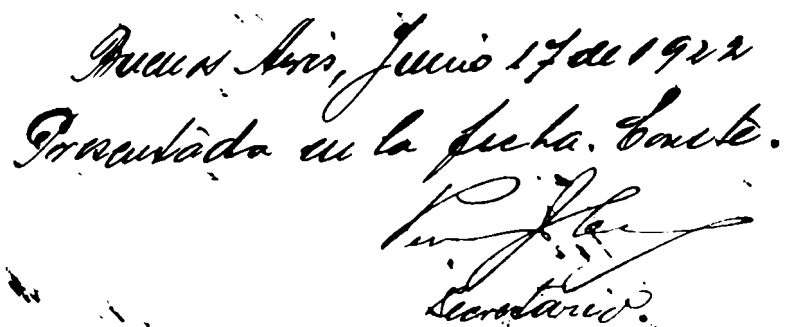 Buenos Aires, Junio 17 de 1922
Presentada en la fecha. Conste.
Secretario.